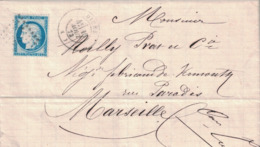 Monsieur
Noilly Prat & Cie
Négts fabricants de Vermouth
rue Paradis
Marseille